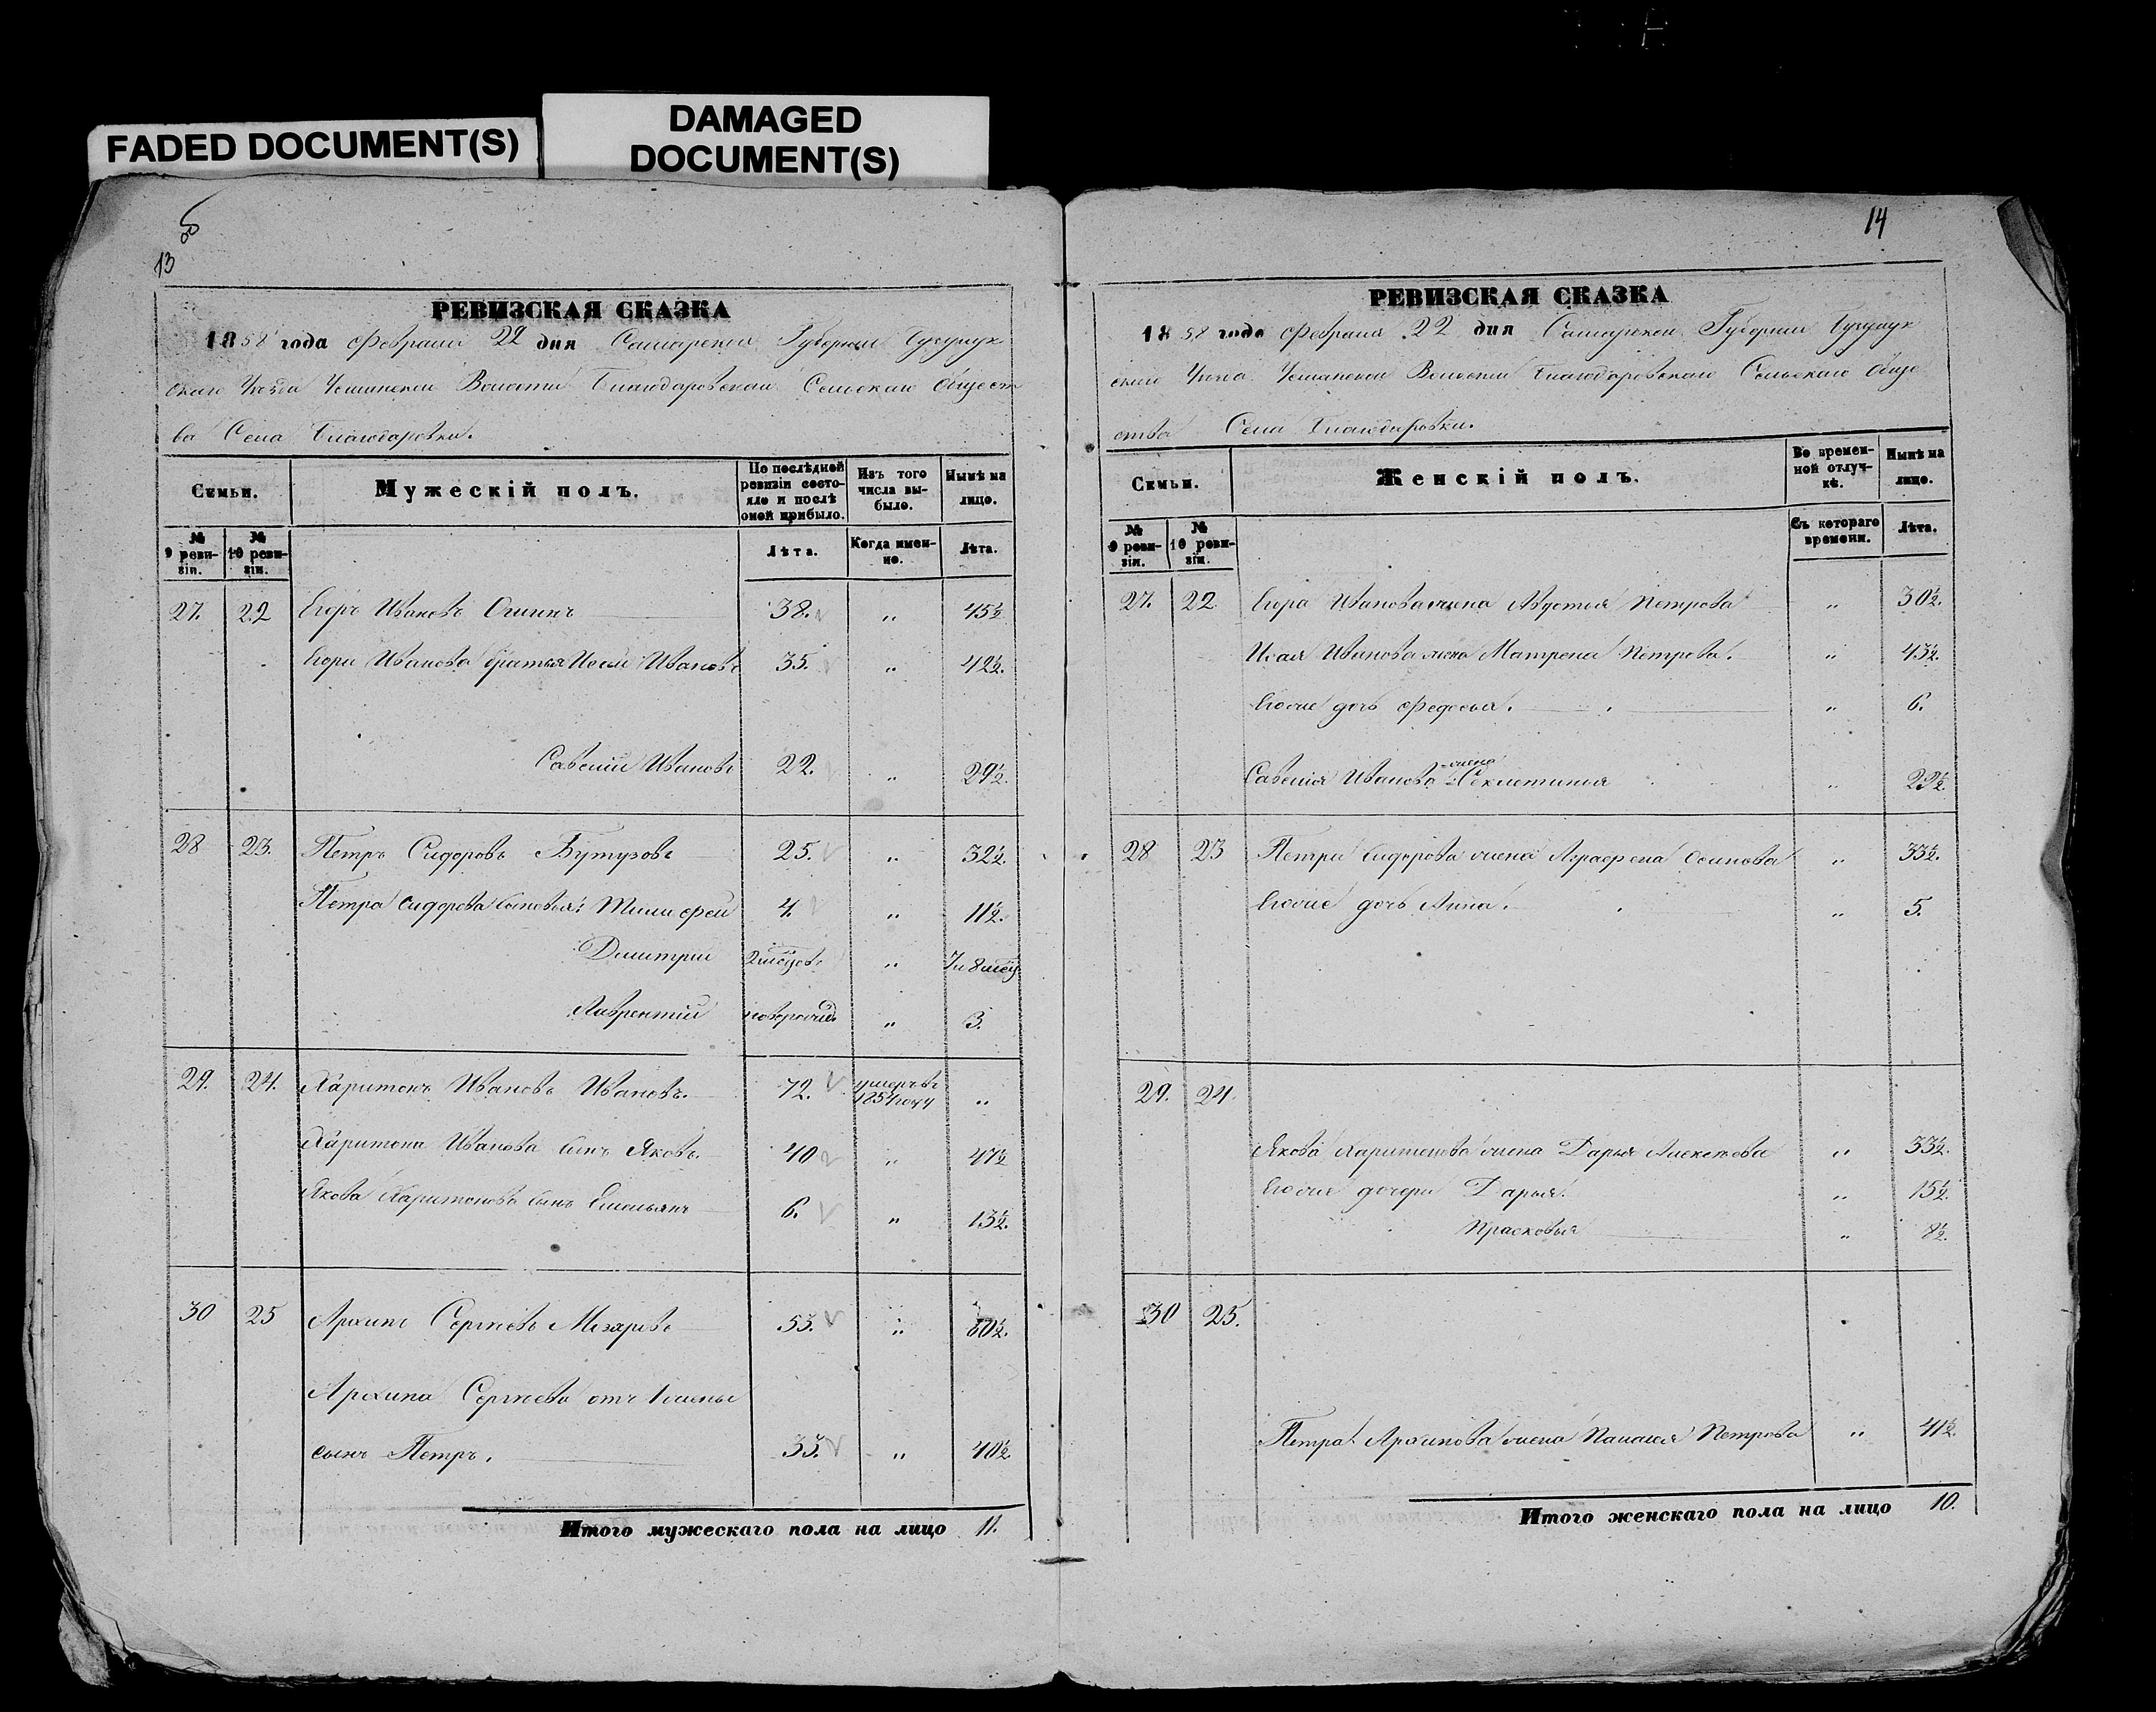 FADED DOCUMENT(S)
DAMAGED
DOCUMENT(S)
13
РЕВИЗСКАЯ СКАЗКА
1858 года Февраля 22 дня Самарской Губерніи Бузулук
скаго Уѣзда Усманской Волости Благодаровскаго Сельскаго Общест
ва Села Благодаровки.
Семьи.
Мужескій полъ.
По послѣдней ревизіи состояло и послѣ оной прибыло.
Изъ того числа выбыло.
Нынѣ на лицо.
№ 9 ревизіи.
№ 10 ревизіи.
Лѣта.
Когда именно.
Лѣта.
27. 22 Егоръ Ивановъ 38. " 45½
Егора Иванова братья Исай Ивановъ 35. " 42½.
Савелій Ивановъ 22. " 29½.
28 23. Петръ Сидоровъ Бутузовъ 25. " 32½.
Петра Сидорова сыновья: Тимофей 4. " 11½.
Дмитрій 2 мѣсяцовъ " 7 и 8 мѣсяц
Лаврентій новорожд. " 3.
29. 24. Харитонъ Ивановъ Ивановъ. 72. умеръ въ 1854 году "
Харитона Иванова сынъ Яковъ. 40 " 47½
Якова Харитонова сынъ Емельянъ 6. " 13½.
30 25 Архипъ Сергѣевъ 53. " 60½.
Архипа Сергѣева отъ 1 жены
сынъ Петръ. 33. " 40½
Итого мужескаго пола на лицо 11.
14
РЕВИЗСКАЯ СКАЗКА
1858 года Февраля 22 дня Самарской Губерніи Бузулук
скаго Уѣзда Усманской Волости Благодаровскаго Сельскаго Обще
ства Села Благодаровки.
Семьи.
Женскій полъ.
Во временной отлучкѣ.
Нынѣ на лицо.
№ 9 ревизіи.
№ 10 ревизіи.
Съ котораго времени.
Лѣта.
27. 22 Егора Иванова жена Авдотья Петрова " 30½.
Исая Иванова жена Матрена Петрова. " 43½.
Его же дочь Федосья. " 6.
Савелія Иванова жена Секлетинья " 29½.
28 23 Петра Сидорова жена Аграфена Осипова " 33½.
Его же дочь Анна. " 5.
29. 24.
Якова Харитонова жена Дарья Алексѣева " 33½.
Его же дочери Дарья. " 15½.
Прасковья " 8½.
30 25.
Петра Архипова жена Пелагея Петрова " 41½.
Итого женскаго пола на лицо 10.